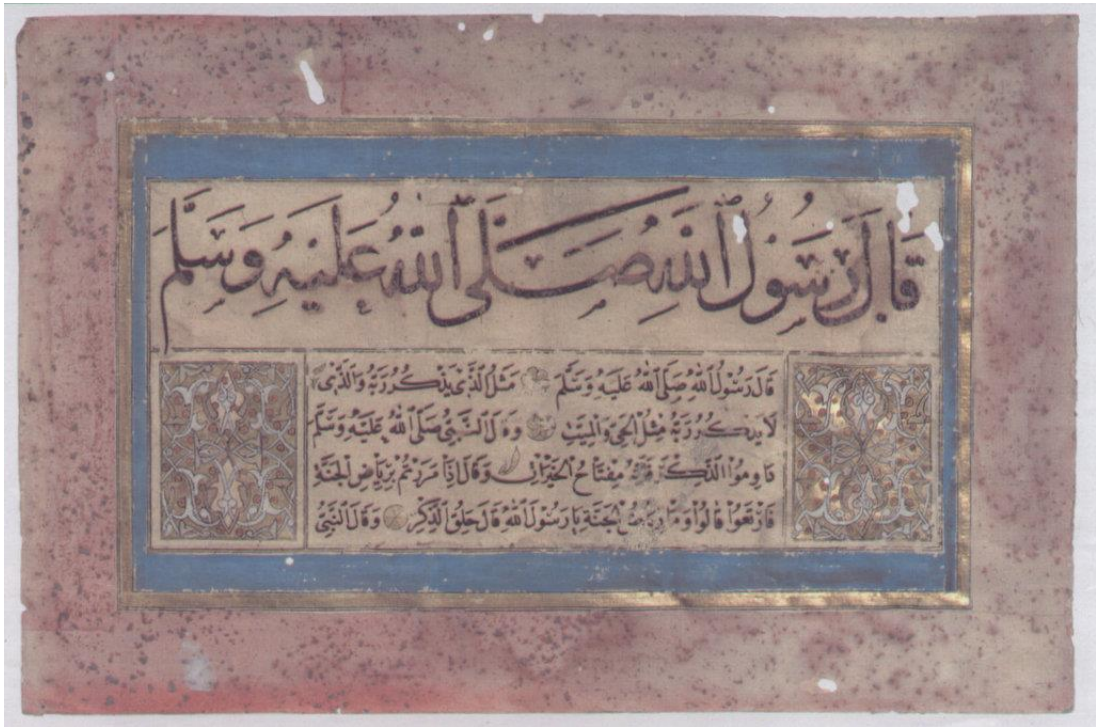 قَالَ رَسُولُ ٱللَّهِ صَلَّى ٱللَّهُ عَلَيْهِ وَسَلَّمَ
قَالَ رَسُولُ اللهِ صَلَّى اللهُ عَلَيْهِ وَسَلَّمَ مَثَلُ الَّذِي يَذْكُرُ رَبَّهُ وَالَّذِي
لَا يَذْكُرُ رَبَّهُ مَثَلُ الْحَيِّ وَالْمَيِّتِ وَقَالَ النَّبِيُّ صَلَّى اللهُ عَلَيْهِ وَسَلَّمَ
دَاوِمُوا الذِّكْرَ فَإِنَّهُ مِفْتَاحُ الْخَيْرَاتِ وَقَالَ إِذَا مَرَرْتُمْ بِرِيَاضِ الْجَنَّةِ
فَارْتَعُوا قَالُوا وَمَا رِيَاضُ الْجَنَّةِ يَا رَسُولَ اللهِ قَالَ حِلَقُ الذِّكْرِ وَقَالَ النَّبِيُّ